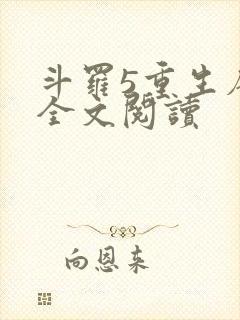 斗羅5重生
全文閱讀
向恩來